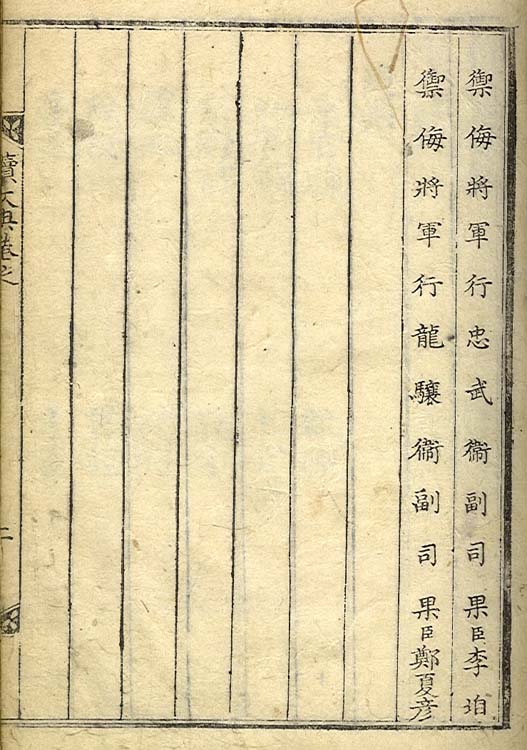 禦侮將軍行忠武衛副司果臣李
禦侮將軍行龍驤衛副司果臣鄭夏彦
續大典卷之